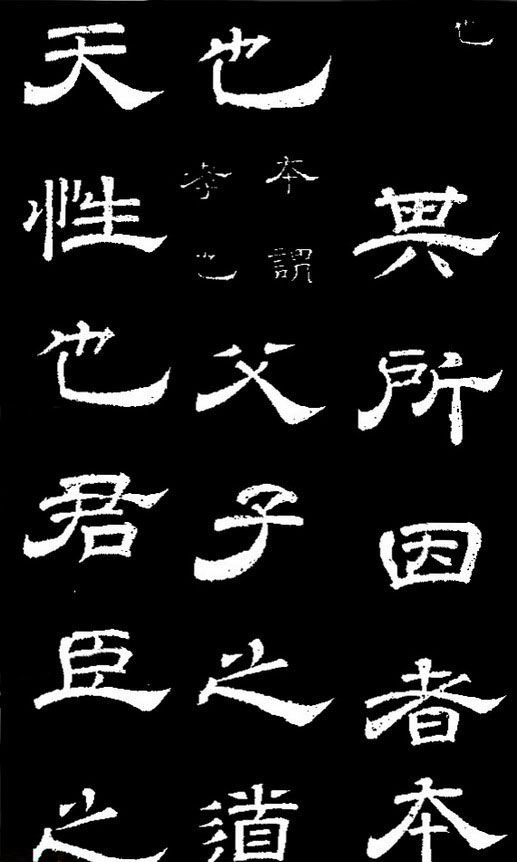 也
其所因者本
也
本謂
孝也
父子之道
天性也君臣之